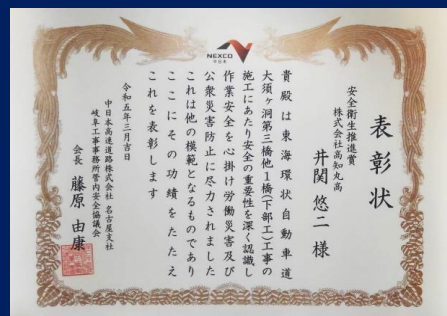 NEXCO
中日本
表彰状
安全衛生推進賞
株式会社高知丸高
井関 悠二 様
貴殿は東海環状自動車道
大須ヶ洞第三橋他1橋(下部工)工事の
施工にあたり安全の重要性を深く認識し
作業安全を心掛け労働災害及び
公衆災害防止に尽力されました
これは他の模範となるものであり
ここにその功績をたたえ
これを表彰します
令和五年三月吉日
中日本高速道路株式会社 名古屋支社
岐阜工事事務所管内安全協議会
会長 藤原 由康